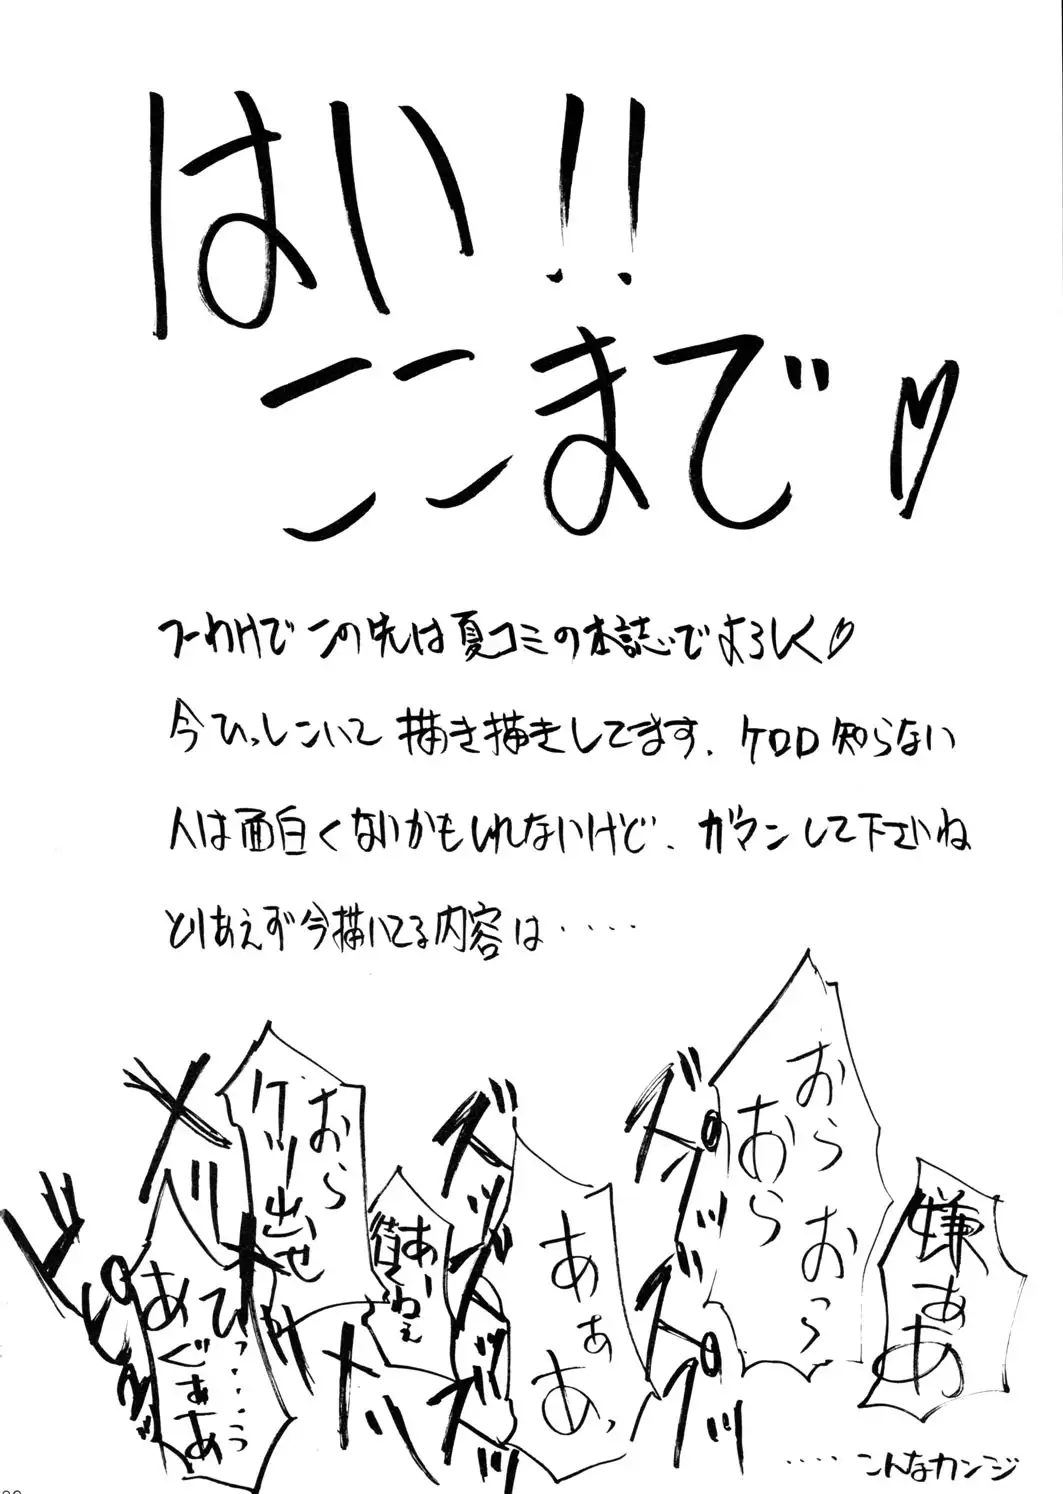 はい!!
ここまで♡
つーわけでこの先は夏コミの本誌でよろしく♡
今ひっしこいて描き描きしてます、ケロロ知らない
人は面白くないかもしれないけど、ガマンして下さいね
とりあえず今描いてる内容は‥‥
嫌ぁあ
おらおら
おらおらっ
ズプッ
ズプッ
あぁあっ
ズッズッズッ
あーねぇ
おら
ケツ出せ
ひっ‥‥うっ
あぐぁあ
‥‥こんなカンジ